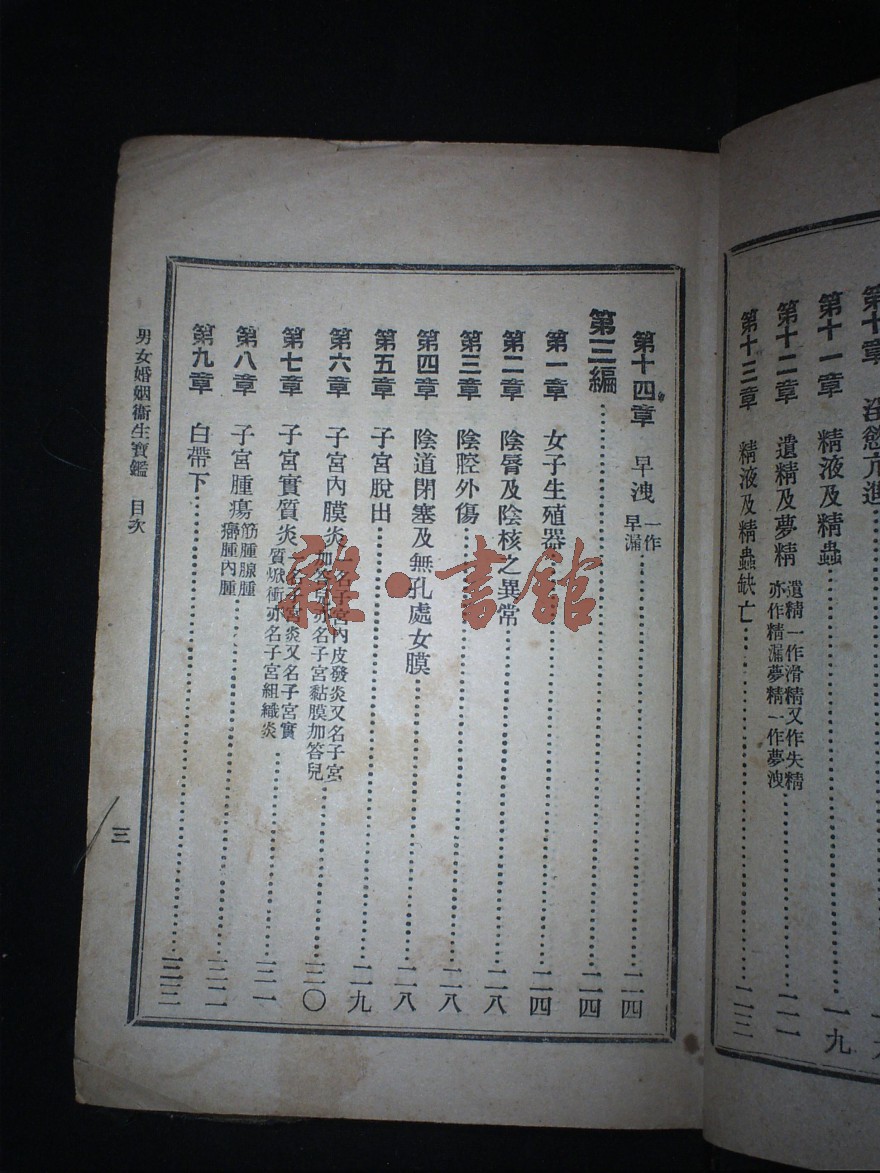 第十章　淫慾亢進
第十一章　精液及精蟲　一九
第十二章　遺精及夢精　遺精一作滑精又作失精亦作精漏夢精一作夢洩
第十三章　精液及精蟲缺亡　二三
第十四章　早洩　一作早漏　二四
第三編　二四
第一章　女子生殖器　二四
第二章　陰脣及陰核之異常　二八
第三章　陰腔外傷　二八
第四章　陰道閉塞及無孔處女膜　二八
第五章　子宮脫出　二九
第六章　子宮內膜炎　一名子宮內皮發炎又名子宮加答兒亦名子宮黏膜加答兒　三〇
第七章　子宮實質炎　一名子宮炎又名子宮實質焮衝亦名子宮組織炎　三一
第八章　子宮腫瘍　筋腫腺腫癤腫內腫　三二
第九章　白帶下　三三
男女婚姻衞生寶鑑　目次
三
雜·書館